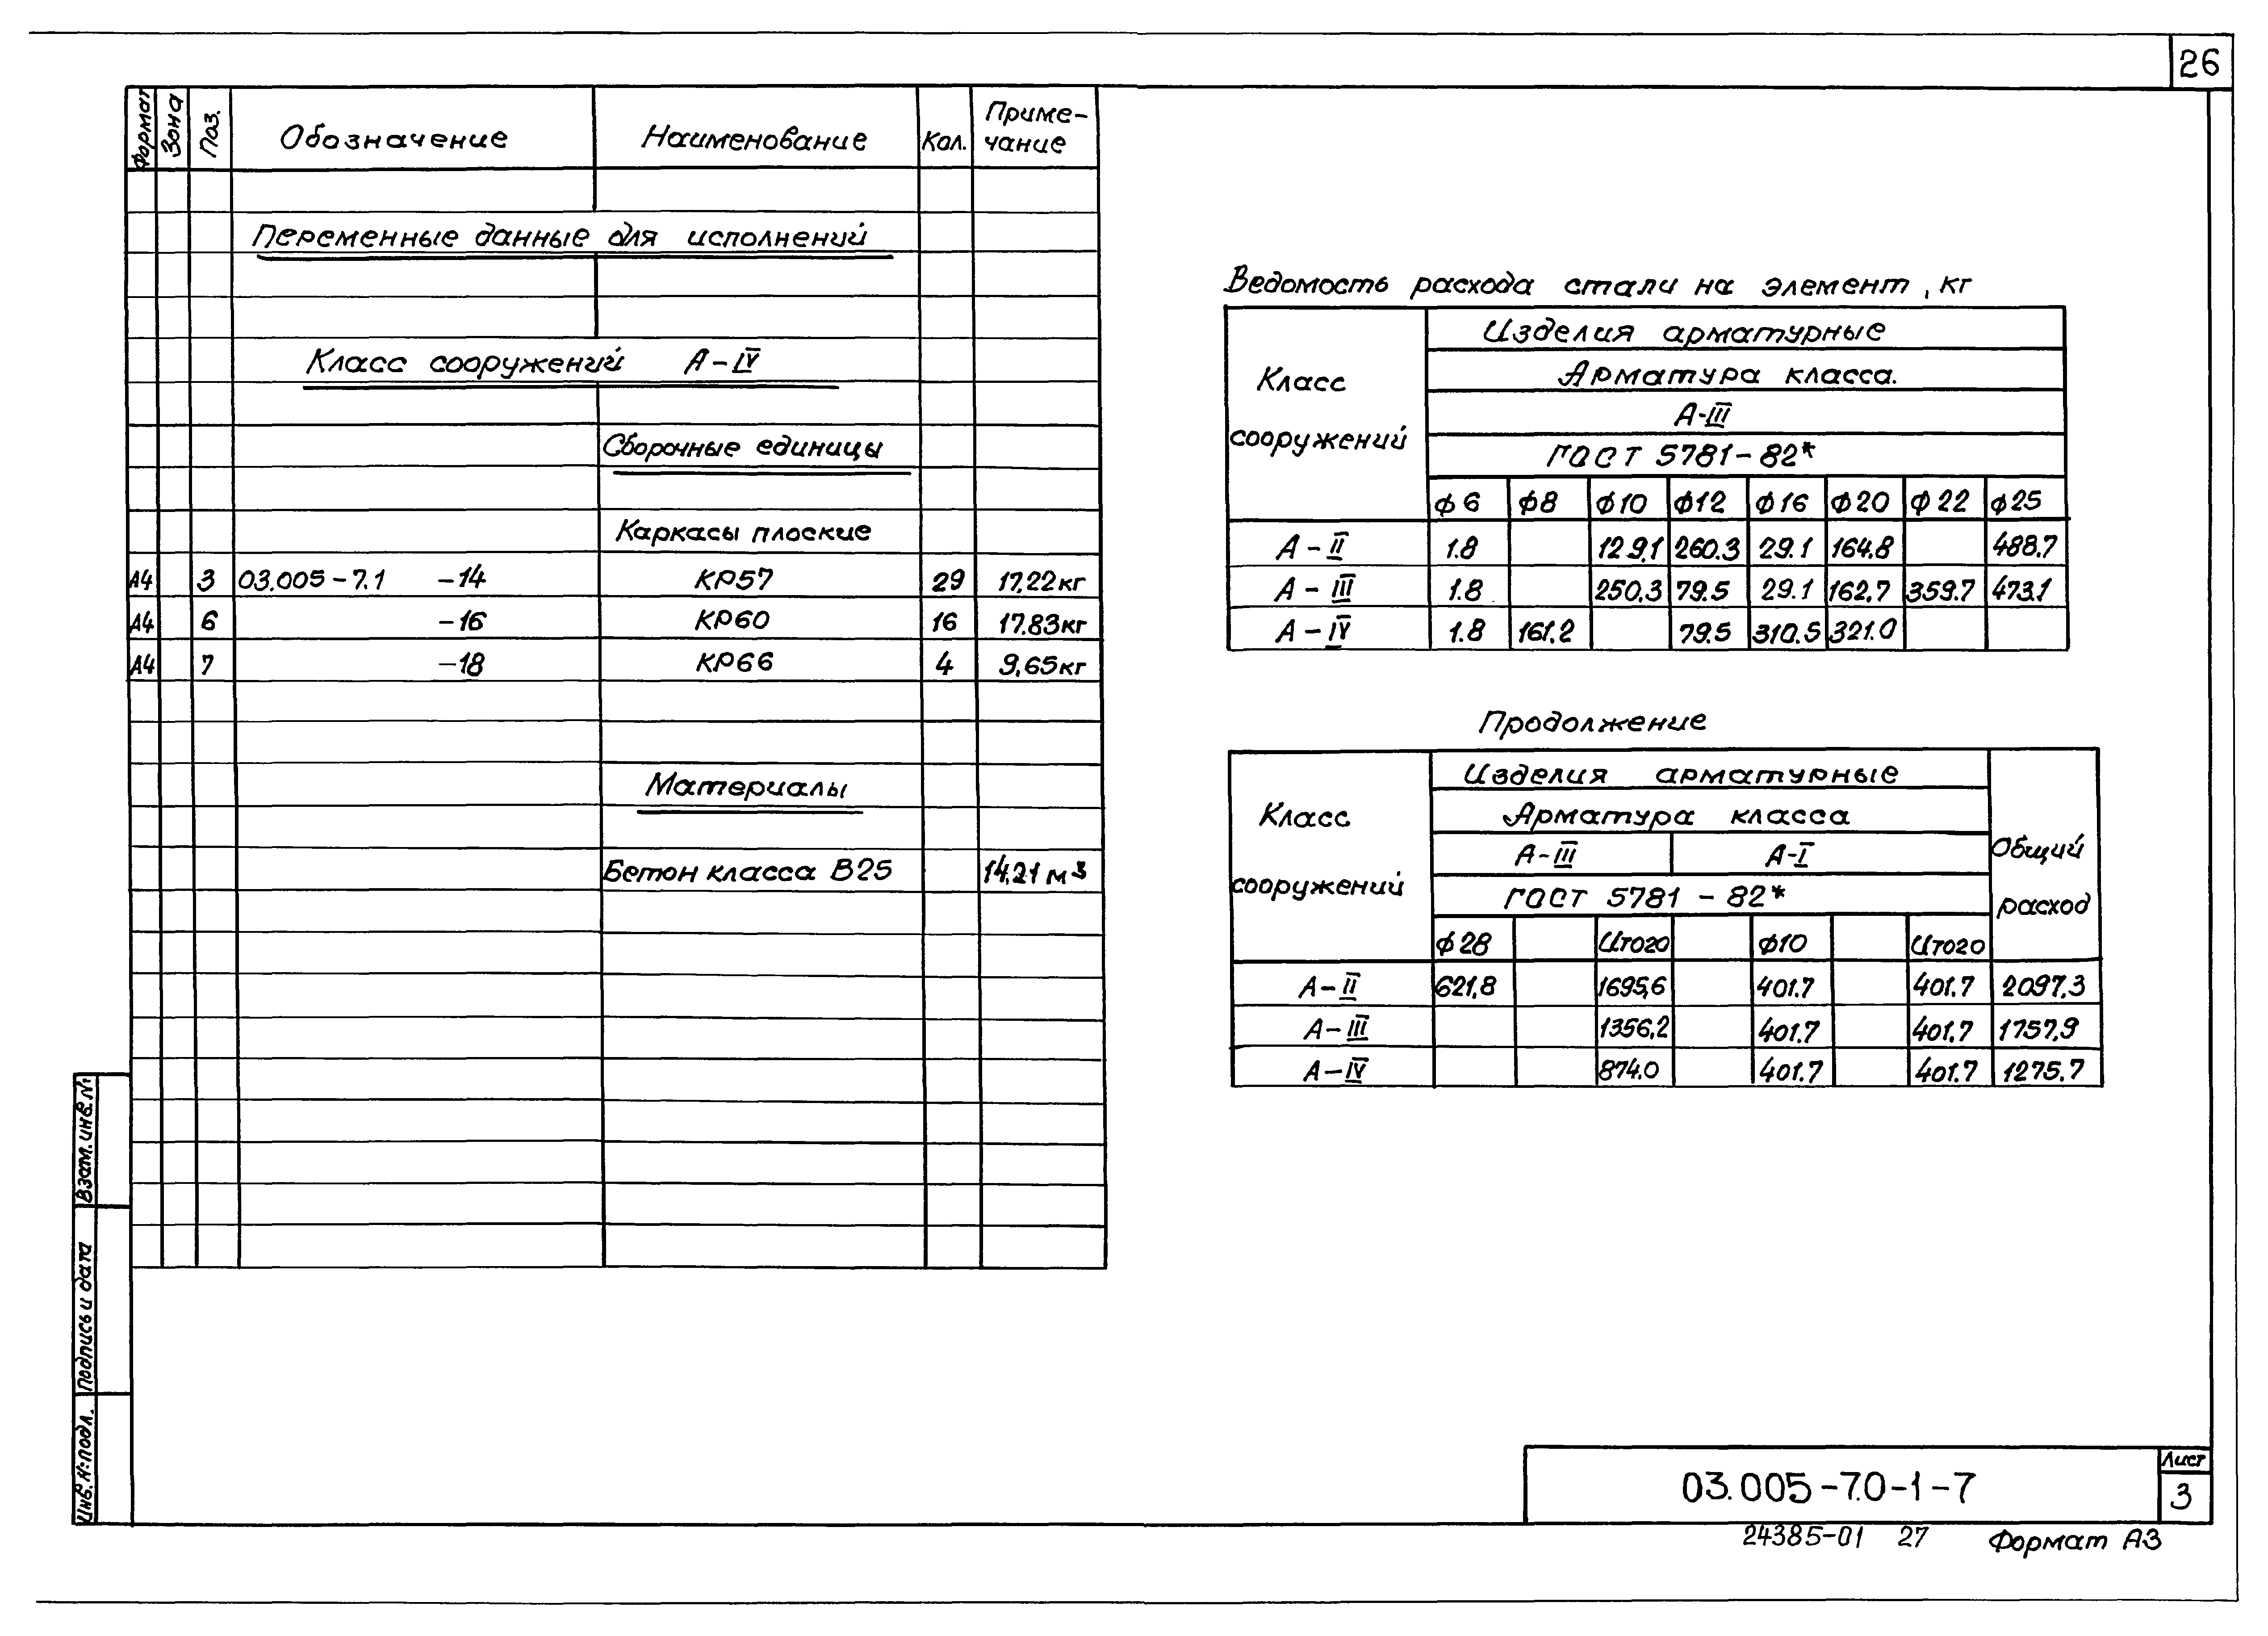 26
Формат Зона Поз. Обозначение Наименование Кол. Приме-чание
Переменные данные для исполнений
Класс сооружений А-IV
Сборочные единицы
Каркасы плоские
А4 3 03.005-7.1 -14 КР57 29 17,22кг
А4 6 -16 КР60 16 17.83кг
А4 7 -18 КР66 4 9,65кг
Материалы
Бетон класса В25 14,21 м³
Ведомость расхода стали на элемент, кг
Класс сооружений
Изделия арматурные
Арматура класса.
А-III
ГОСТ 5781-82*
ф6 ф8 ф10 ф12 ф16 ф20 ф22 ф25
А-II 1.8 129,1 260.3 29.1 164.8 488.7
А-III 1.8 250.3 79.5 29.1 162.7 359.7 473.1
А-IV 1.8 161.2 79.5 310.5 321.0
Продолжение
Класс сооружений
Изделия арматурные
Общий расход
Арматура класса
А-III А-I
ГОСТ 5781-82*
ф28 Итого ф10 Итого
А-II 621.8 1695,6 401.7 401.7 2097.3
А-III 1356,2 401.7 401.7 1757,9
А-IV 874.0 401.7 401.7 1275.7
Взам. инв. N:
Подпись и дата
Инв. N: подл.
03.005-7.0-1-7
Лист
3
24385-01 27 Формат А3